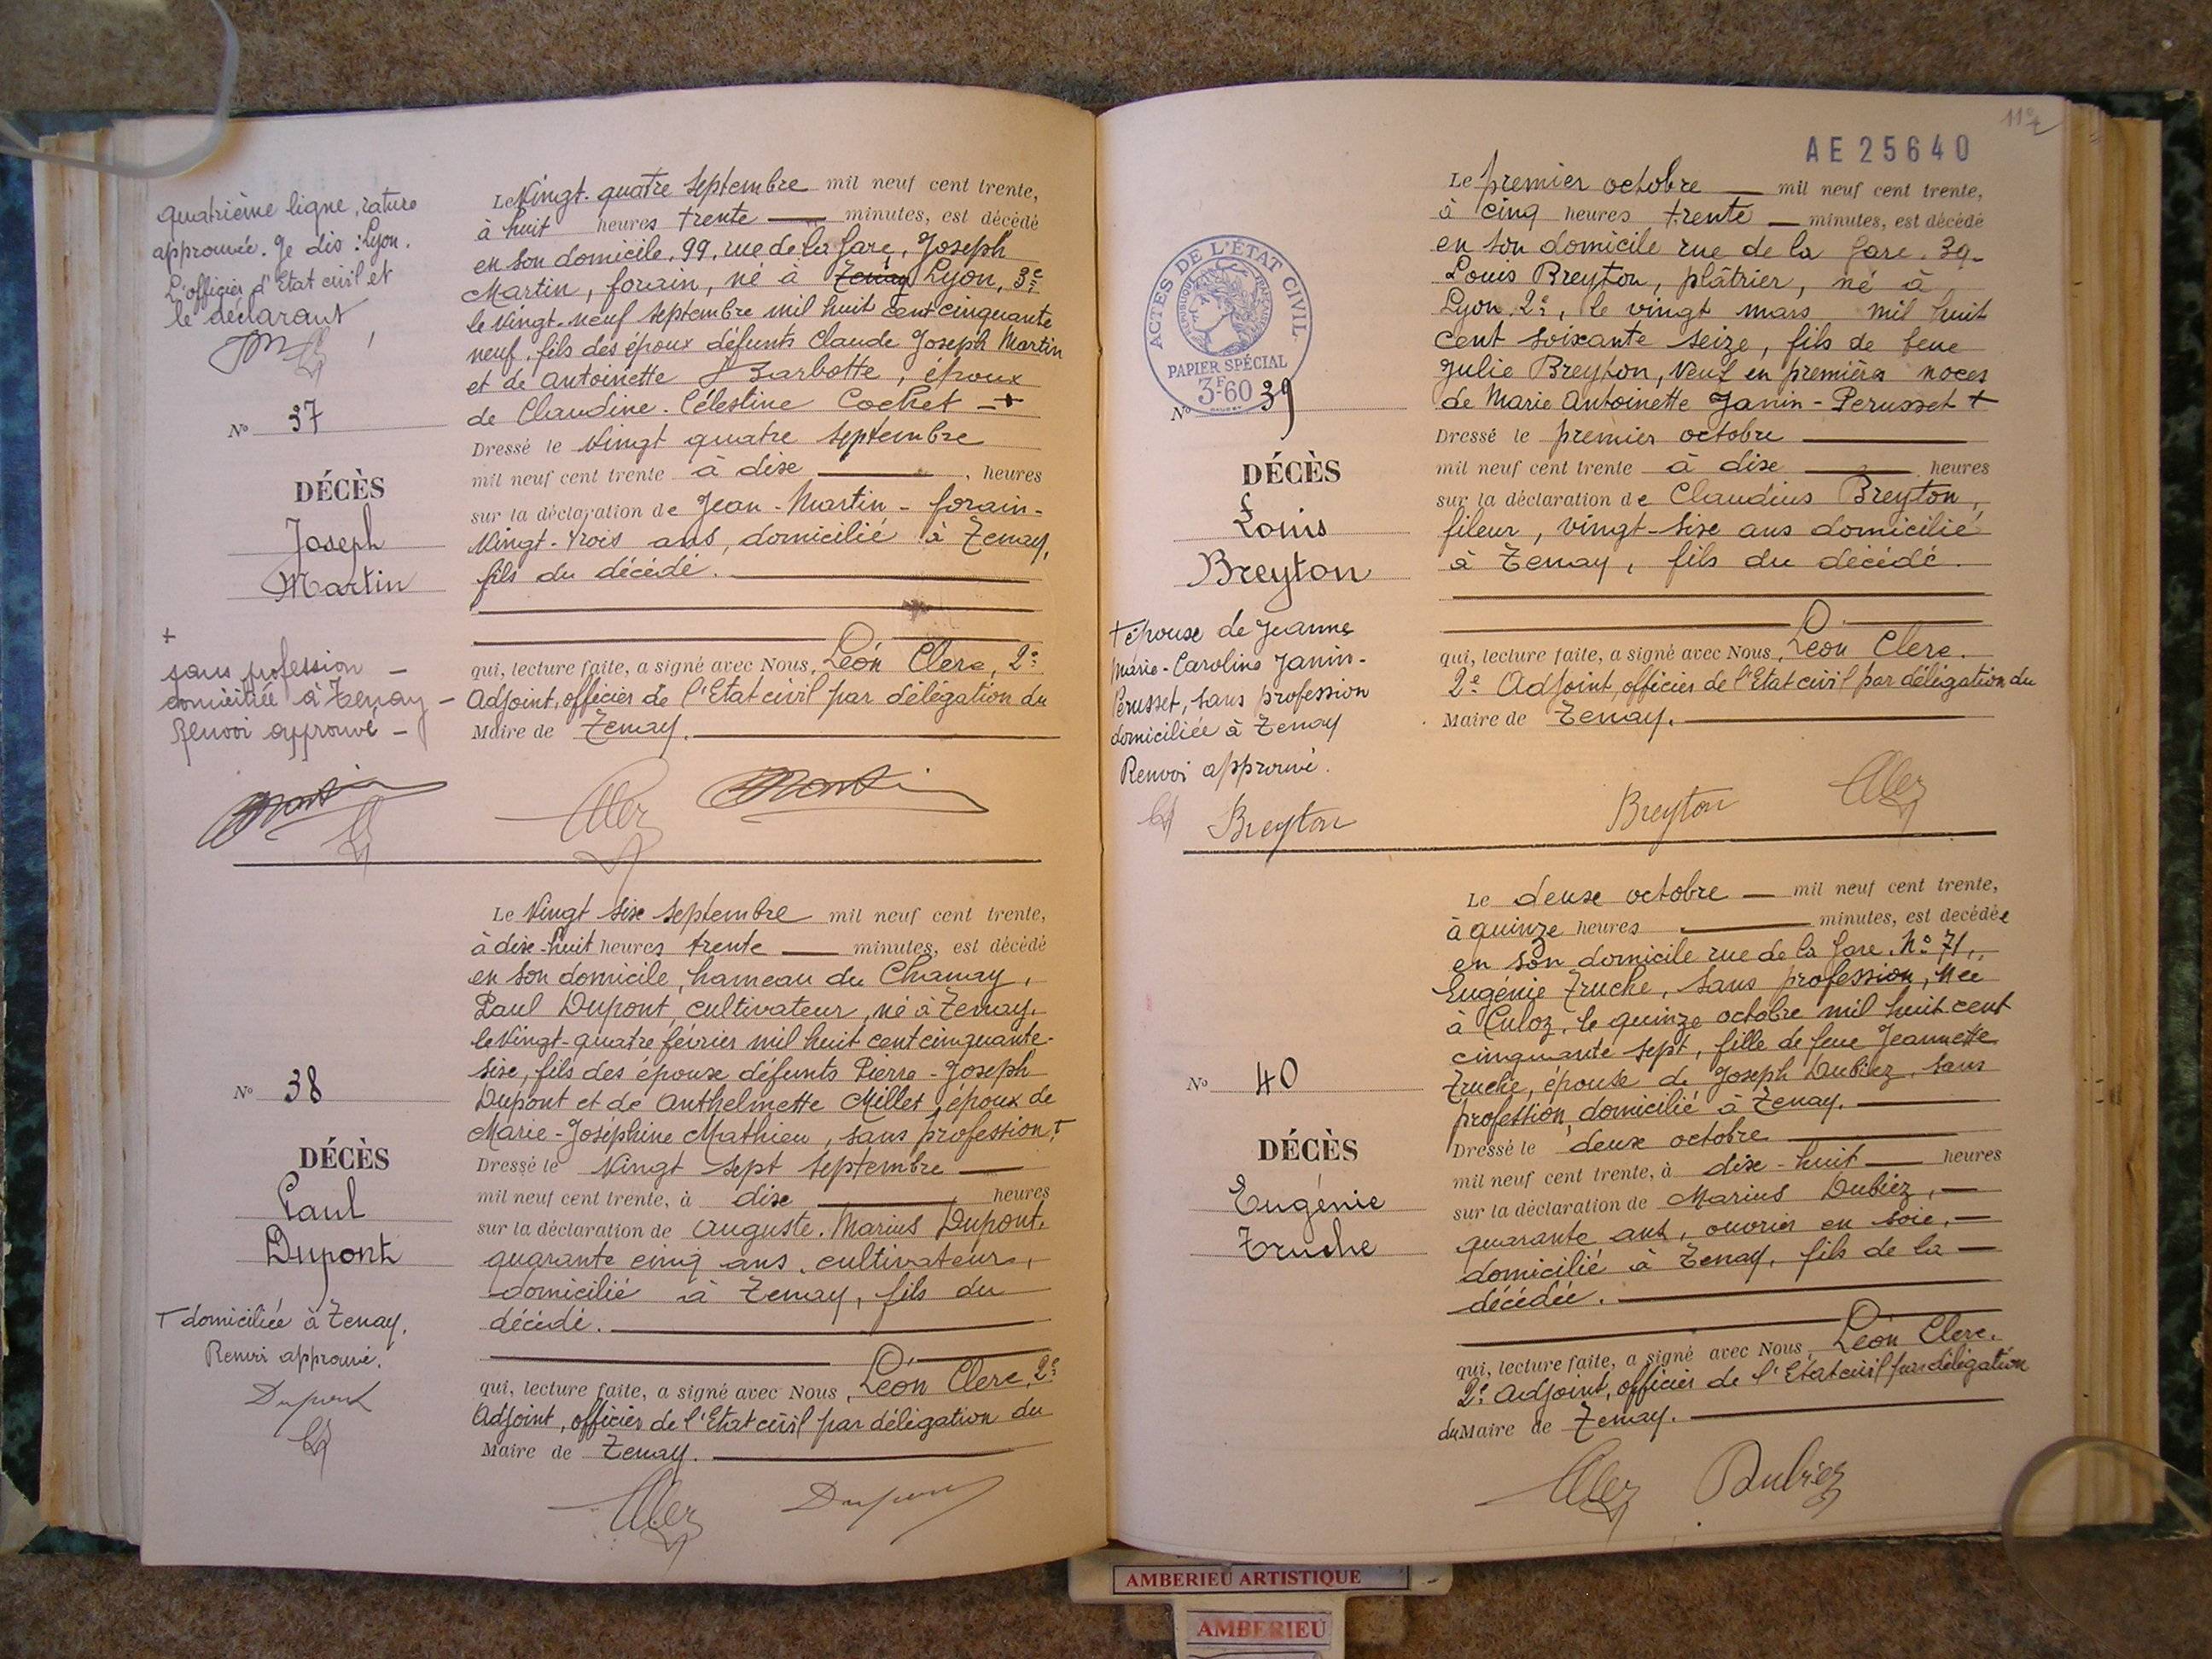 quatrième ligne, rature
approuvée. Je dis : Lyon.
L'officier d'Etat civil et
le déclarant
JM
N° 37
DÉCÈS
Joseph
Martin
+
sans profession –
domiciliée à Tenay –
Renvoi approuvé –
Martin
Le Vingt-quatre septembre mil neuf cent trente,
à huit heures trente minutes, est décédé
en son domicile, 99, rue de la Gare, Joseph
Martin, forain, né à Tenay Lyon, 3e
le vingt-neuf septembre mil huit cent cinquante
neuf, fils des époux défunts Claude Joseph Martin
et de Antoinette Barbotte, époux
de Claudine-Célestine Cochet +
Dressé le Vingt quatre septembre
mil neuf cent trente à dix heures
sur la déclaration de Jean-Martin-forain-
vingt-trois ans, domicilié à Tenay,
fils du décédé.
qui, lecture faite, a signé avec Nous, Léon Clerc, 2e
Adjoint, officier de l'Etat civil par délégation du
Maire de Tenay.
Clerc Martin
N° 38
DÉCÈS
Paul
Dupont
+ domiciliée à Tenay.
Renvoi approuvé.
Dupont
Le Vingt six septembre mil neuf cent trente,
à dix-huit heures trente minutes, est décédé
en son domicile, hameau du Chanay,
Paul Dupont, cultivateur, né à Tenay,
le Vingt-quatre février mil huit cent cinquante-
six, fils des époux défunts Pierre-Joseph
Dupont et de Anthelmette Millet, époux de
Marie-Joséphine Mathieu, sans profession, +
Dressé le Vingt sept septembre
mil neuf cent trente, à dix heures
sur la déclaration de Auguste. Marius Dupont,
quarante cinq ans, cultivateur,
domicilié à Tenay, fils du
décédé.
qui, lecture faite, a signé avec Nous, Léon Clerc, 2e
Adjoint, officier de l'Etat civil par délégation du
Maire de Tenay.
Clerc Dupont
112
AE 25640
ACTES DE L'ÉTAT CIVIL
RÉPUBLIQUE FRANÇAISE
PAPIER SPÉCIAL
3F60
N° 39
DÉCÈS
Louis
Breyton
+ épouse de Jeanne
Marie-Caroline Janin-
Pérusset, sans profession
domiciliée à Tenay
Renvoi approuvé.
Breyton
Le premier octobre mil neuf cent trente,
à cinq heures trente minutes, est décédé
en son domicile rue de la Gare, 39-
Louis Breyton, plâtrier, né à
Lyon, 2e, le vingt mars mil huit
cent soixante seize, fils de feue
Julie Breyton, veuf en premières noces
de Marie Antoinette Janin-Perusset +
Dressé le premier octobre
mil neuf cent trente à dix heures
sur la déclaration de Claudius Breyton,
fileur, vingt-six ans domicilié
à Tenay, fils du décédé.
qui, lecture faite, a signé avec Nous, Léon Clerc.
2e Adjoint, officier de l'Etat civil par délégation du
Maire de Tenay.
Breyton Clerc
N° 40
DÉCÈS
Eugénie
Truche
Le deux octobre mil neuf cent trente,
à quinze heures minutes, est décédée
en son domicile rue de la Gare, N° 71,
Eugénie Truche, sans profession, née
à Culoz, le quinze octobre mil huit cent
cinquante sept, fille de feue Jeannette
Truche, épouse de Joseph Dubiez, sans
profession, domicilié à Tenay.
Dressé le deux octobre
mil neuf cent trente, à dix-huit heures
sur la déclaration de Marius Dubiez,
quarante ans, ouvrier en soie,
domicilié à Tenay, fils de la
décédée.
qui, lecture faite, a signé avec Nous, Léon Clerc.
2e Adjoint, officier de l'Etat civil par délégation
du Maire de Tenay.
Clerc Dubiez
AMBERIEU ARTISTIQUE
AMBERIEU